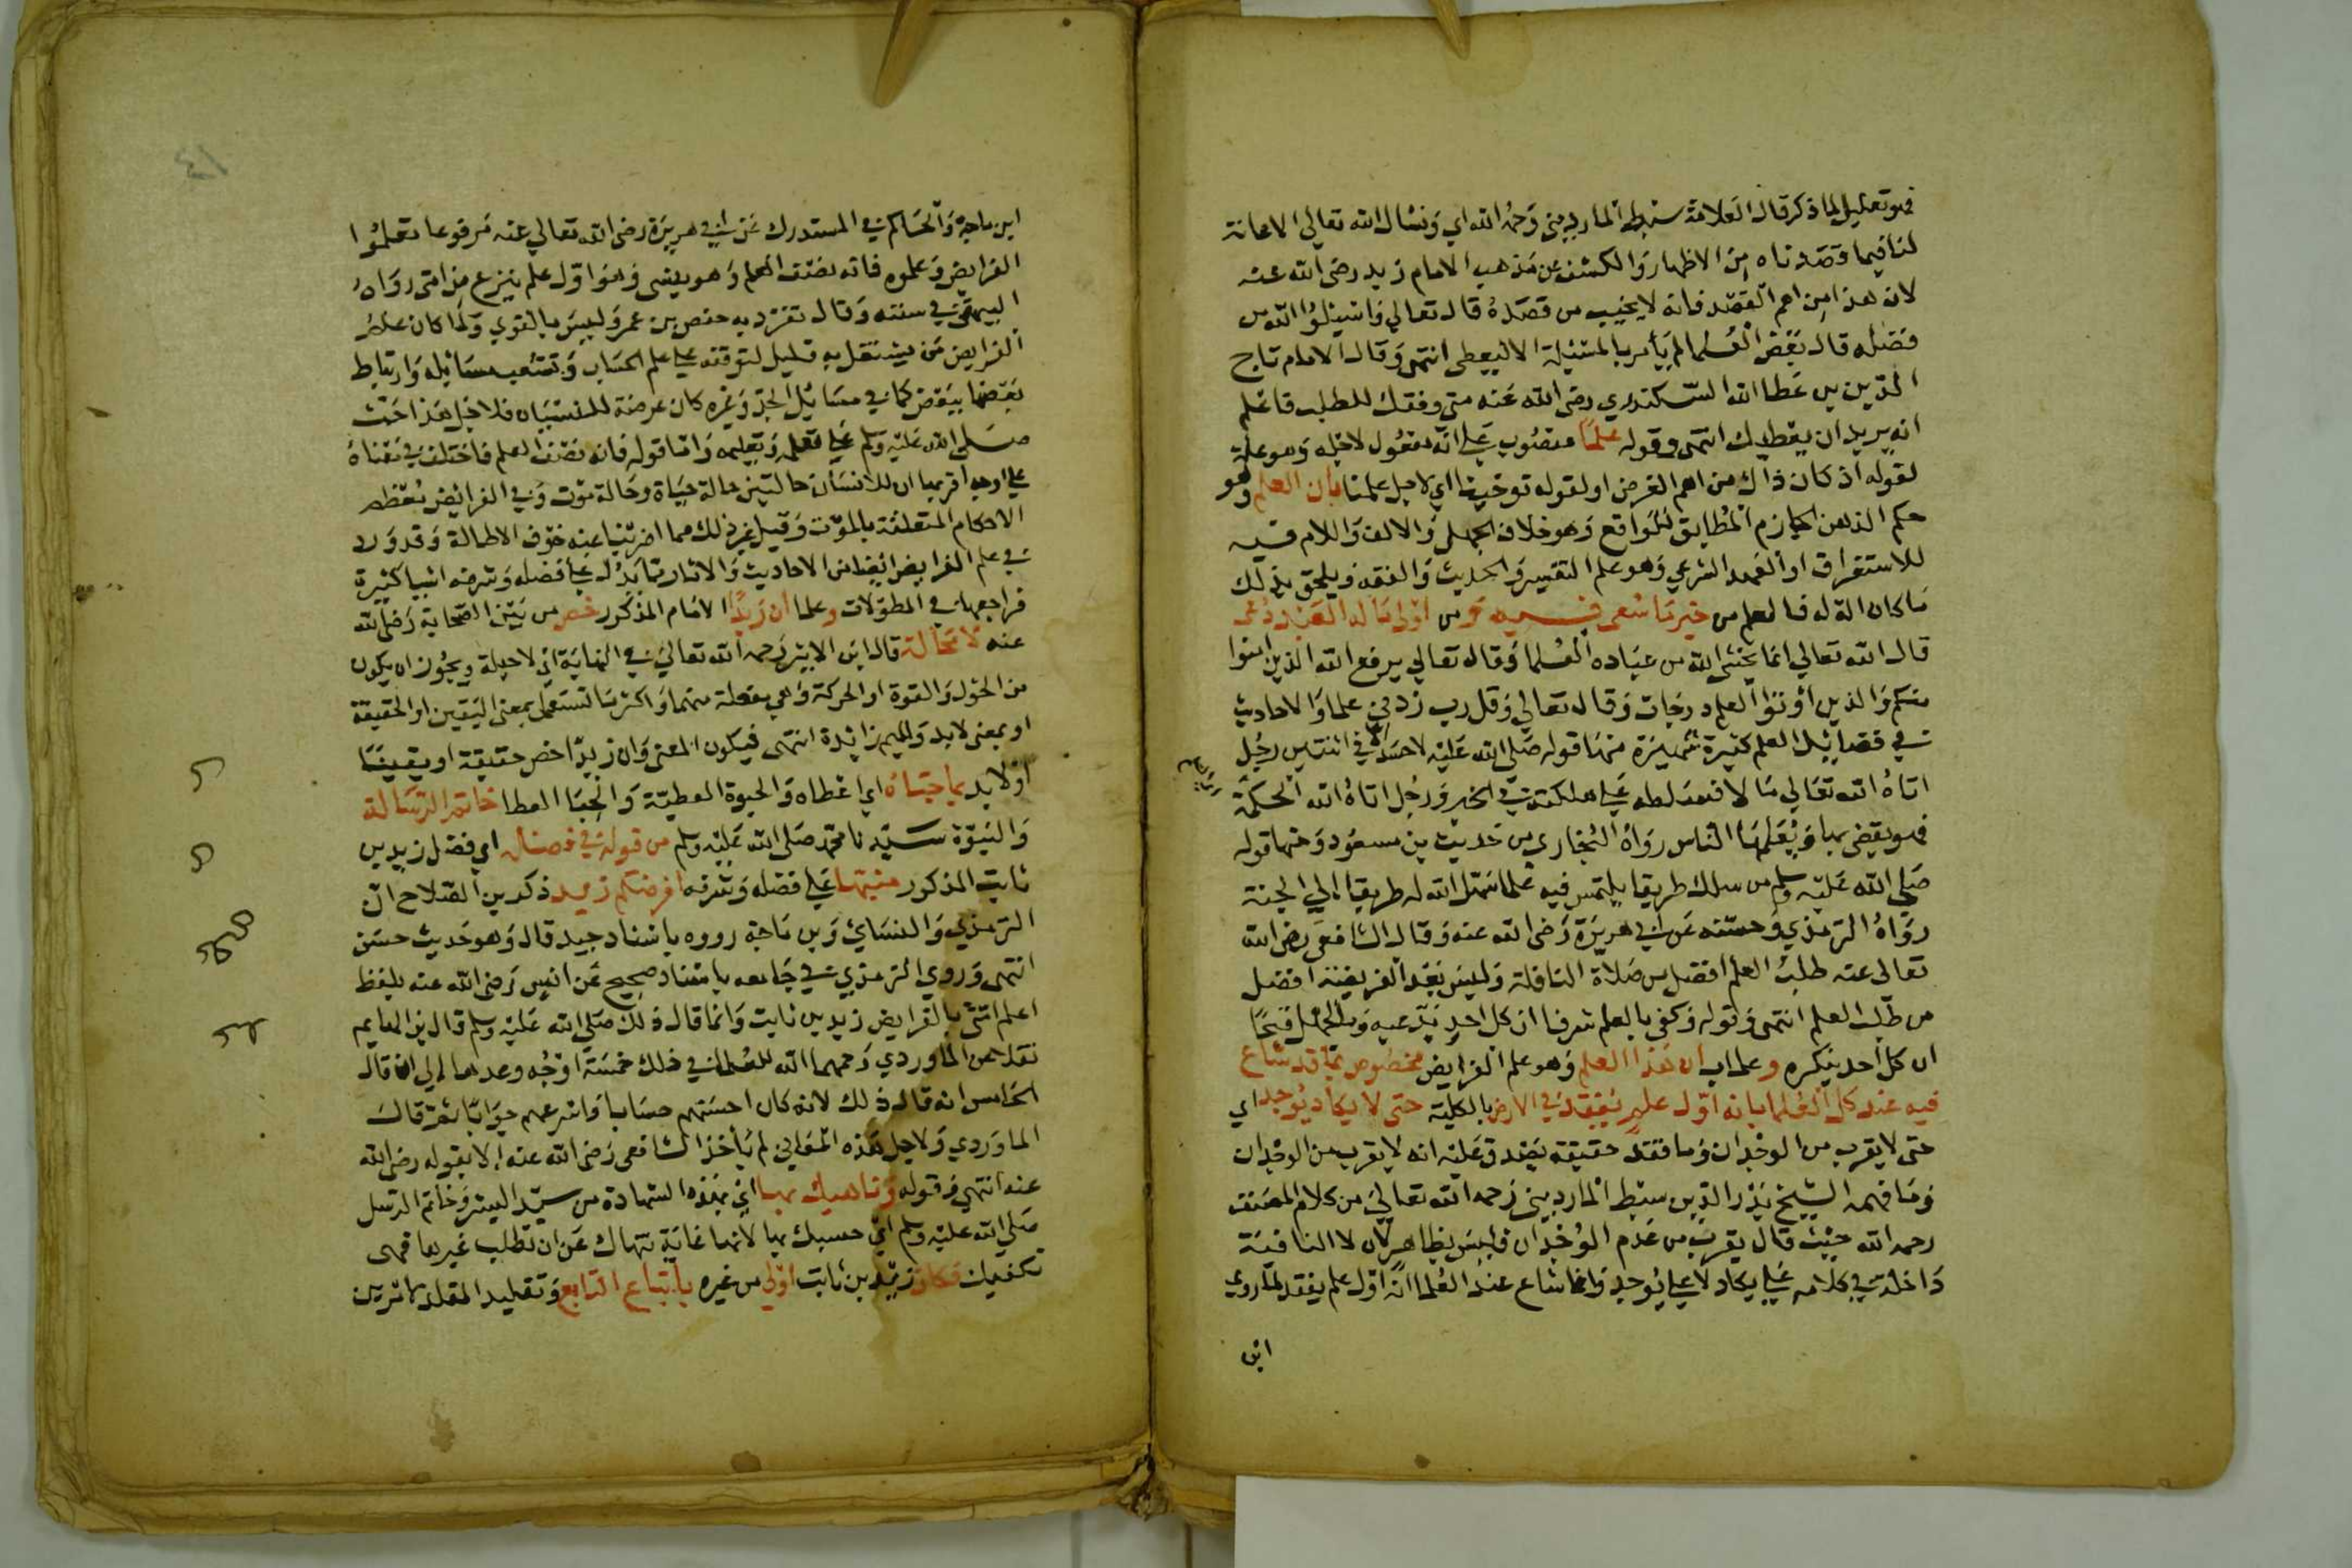 فهو تعليل لما ذكر قال العلامة سبط المارديني رحمه الله اي ونسال الله تعالى الاعانة
لنا فيما قصدناه من الاظهار والكشف عن مذهب الامام زيد رضي الله عنه
لان هذا من اهم القصد فانه لا يخيب من قصده قال تعالى واسئلوا الله من
فضله قال بعض العلما لم يأمر بالمسئلة الا ليعطى انتهى وقال الامام تاج
الدين بن عطا الله السكندري رضي الله عنه متى وفقك للطلب فاعلم
انه يريد ان يعطيك انتهى وقوله علما منصوب على انه مفعول لاجله وهو علة
لقوله اذ كان ذاك من اهم الغرض او لقوله توخينا اي لاجل علمنا بأن العلم وهو
حكم الذهن الجازم المطابق للواقع وهو خلاف الجهل والالف واللام فيه
للاستغراق او للعهد الشرعي وهو علم التفسير والحديث والفقه ويلحق بذلك
ما كان الة له فالعلم من خير ما سعى فيه ومن اولى ما له العبد دعى
قال الله تعالى انما يخشى الله من عباده العلما وقال تعالى يرفع الله الذين امنوا
منكم والذين اوتوا العلم درجات وقال تعالى وقل رب زدني علما والاحاديث
في فضايل العلم كثيرة شهيرة منها قوله صلى الله عليه لا حسد الا في اثنتين رجل
اتاه الله تعالى مالا فسلطه على هلكته في الخير ورجل اتاه الله الحكمة
فهو يقضي بها ويعلمها الناس رواه البخاري من حديث بن مسعود ومنها قوله
صلى الله عليه وسلم من سلك طريقا يلتمس فيه علما سهل الله له طريقا الى الجنة
رواه الترمذي وحسنه عن ابي هريرة رضي الله عنه وقال الشافعي رضي الله
تعالى عنه طلب العلم افضل من صلاة النافلة وليس بعد الفريضة افضل
من طلب العلم انتهى وقوله وكفى بالعلم شرفا ان كل احد يدعيه وبالجهل قبحا
ان كل احد ينكره وعلما بان هذا العلم وهو علم الفرايض مخصوص بما قد شاع
فيه عند كل العلما بانه اول علم يفقد في الارض بالكلية حتى لا يكاد يوجد اي
حتى لا يقرب من الوجدان وما فقد حقيقة يصدق عليه انه لا يقرب من الوجدان
وما فهمه الشيخ بدر الدين سبط المارديني رحمه الله تعالى من كلام المصنف
رحمه الله حيث قال يقرب من عدم الوجدان فليس بظاهر لان لا النافية
داخلة في كلامه على يكاد لا على يوجد وانما شاع عند العلما انه اول علم يفقد لما روى
ابن
ابن ماجة والحاكم في المستدرك عن ابي هريرة رضي الله تعالى عنه مرفوعا تعلموا
الفرايض وعلموه فانه نصف العلم وهو ينسى وهو اول علم ينزع من امتي رواه
البيهقي في سننه وقال تفرد به حفص بن عمر وليس بالقوي ولما كان علم
الفرايض من يشتغل به قليل لتوقفه على علم الحساب وتشعب مسائله وارتباط
بعضها ببعض كما في مسائل الجد وغيره كان عرضة للنسيان فلاجل هذا حث
صلى الله عليه وسلم على تعلمه وتعليمه واما قوله فانه نصف العلم فاختلف في معناه
على اوجه اقربها ان للانسان حالتين حالة حياة وحالة موت وفي الفرائض معظم
الاحكام المتعلقة بالموت وقيل غير ذلك مما اضربنا عنه خوف الاطالة وقد ورد
في علم الفرايض ايضا من الاحاديث والاثار مما يدل على فضله وشرفه اشيا كثيرة
فراجعها في المطولات وعلما ان زيدا الامام المذكور خص من بين الصحابة رضي الله
عنه لا محالة قال ابن الاثير رحمه الله تعالى في النهاية اي لا حيلة ويجوز ان يكون
من الحول والقوة او الحركة وهي مفعلة منهما واكثر ما تستعمل بمعنى اليقين او الحقيقة
او بمعنى لا بد والميم زايدة انتهى فيكون المعنى وان زيدا خص حقيقة او يقينا
او لا بد بما حباه اي اعطاه والحبوة العطية والحبا العطا خاتم الرسالة
والنبوة سيدنا محمد صلى الله عليه وسلم من قوله في فضله اي فضل زيد بن
ثابت المذكور منبها على فضله وشرفه افرضكم زيد ذكر بن الصلاح ان
الترمذي والنسائي وبن ماجة رووه باسناد جيد قال وهو حديث حسن
انتهى وروى الترمذي في جامعه باسناد صحيح عن انس رضي الله عنه بلفظ
اعلم امتي بالفرايض زيد بن ثابت وانما قال ذلك صلى الله عليه وسلم قال بن الهايم
نقلا عن الماوردي رحمهما الله للعلما في ذلك خمسة اوجه وعدها الى ان قال
الخامس انه قال ذلك لانه كان احسنهم حسابا واسرعهم جوابا ثم قال
الماوردي ولاجل هذه المعاني لم يأخذ الشافعي رضي الله عنه الا بقوله رضي الله
عنه انتهى وقوله وناهيك بها اي بهذه الشهادة من سيد البشر وخاتم الرسل
صلى الله عليه وسلم اي حسبك بها لانها غاية تنهاك عن ان تطلب غيرها فهي
تكفيك فكان زيد بن ثابت اولى من غيره باتباع التابع وتقليد المقلد